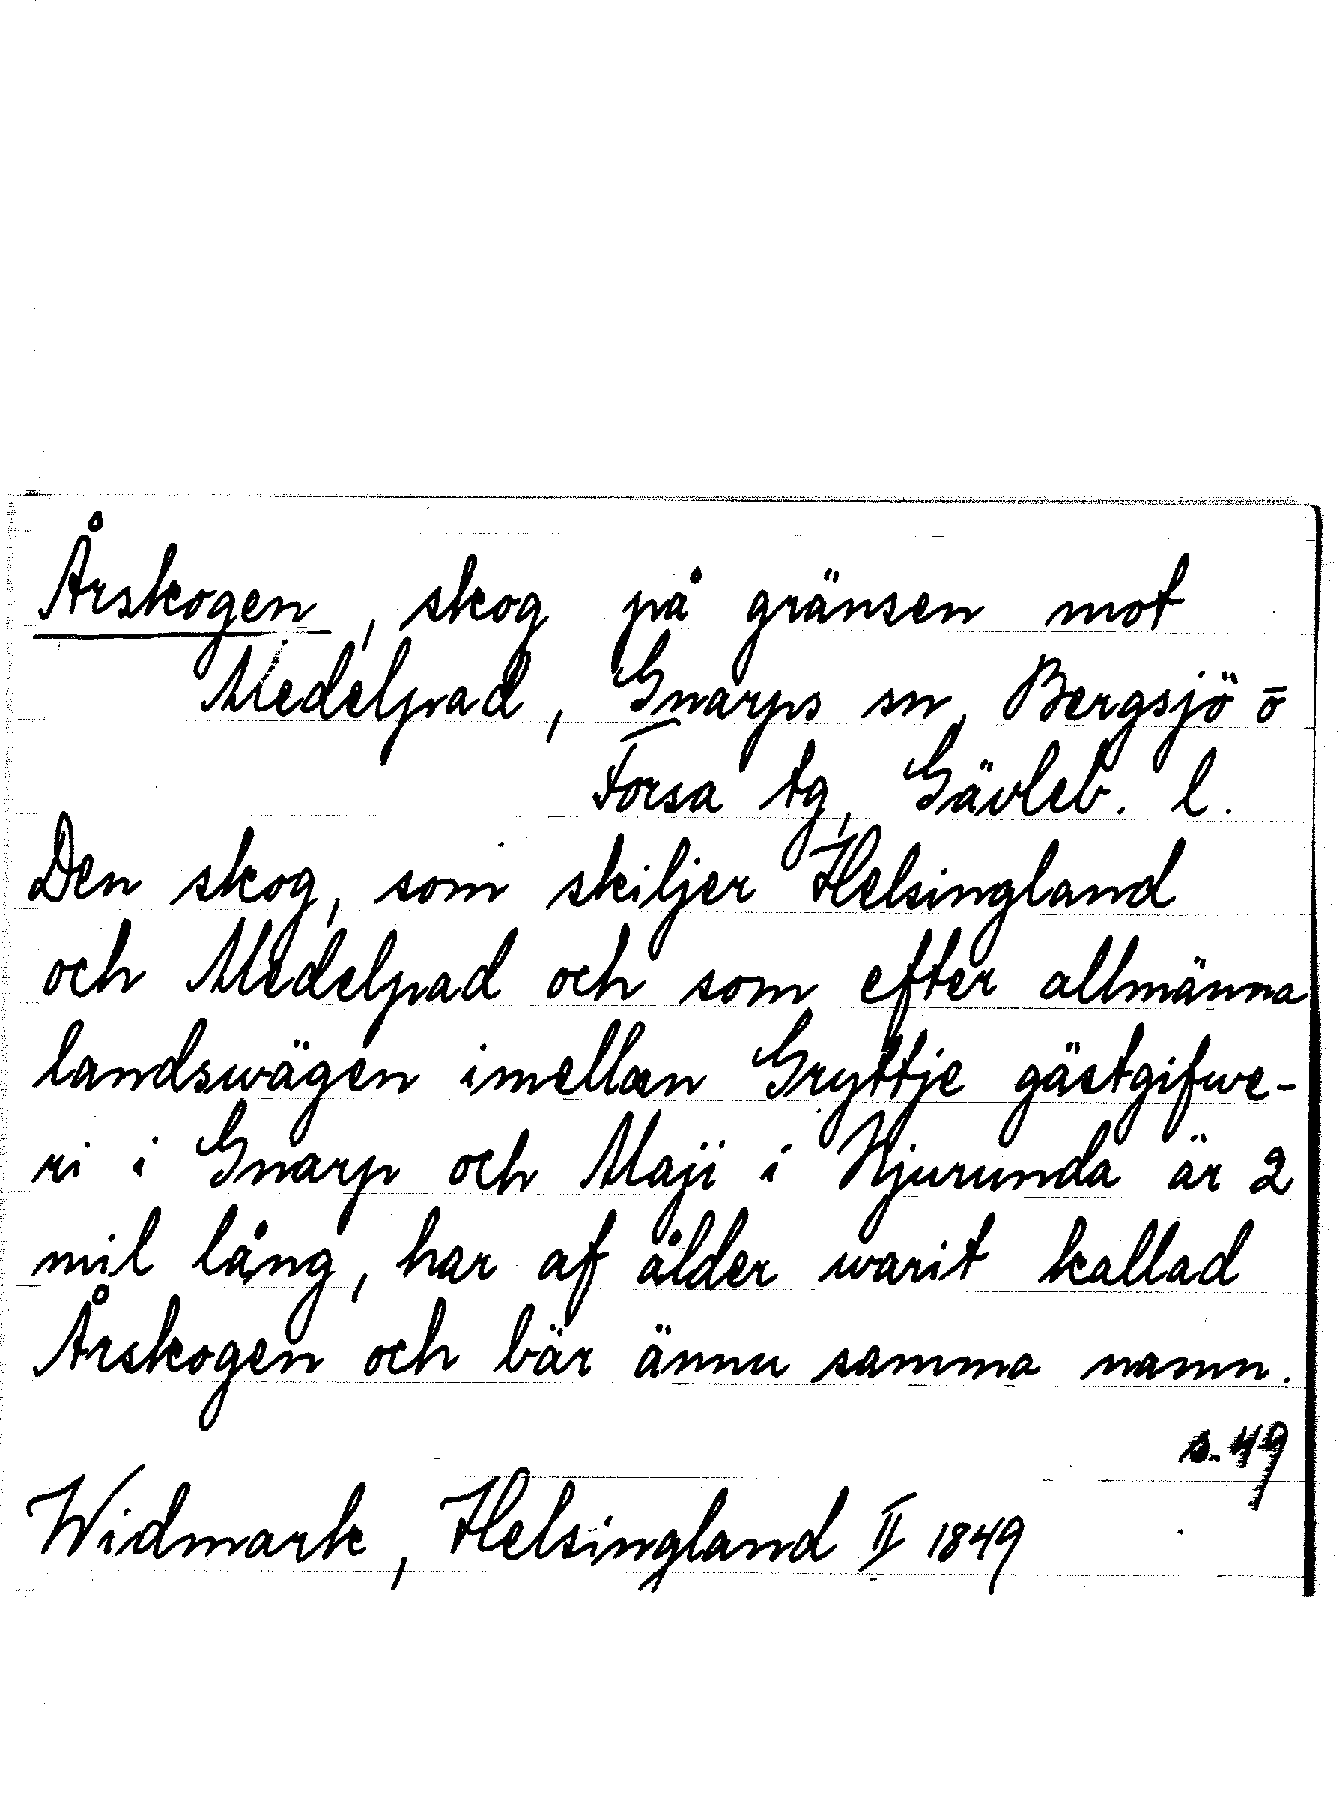 Årskogen, skog på gränsen mot
Medelpad, Gnarps sn, Bergsjö ō
Forsa tg, Gävleb. l.
Den skog, som skiljer Helsingland
och Medelpad och som efter allmänna
landswägen imellan Gryttje gästgifwe-
ri i Gnarp och Maji i Njurunda är 2
mil lång, har af ålder warit kallad
Årskogen och bär ännu samma namn.
s. 49
Widmark, Helsingland II 1849